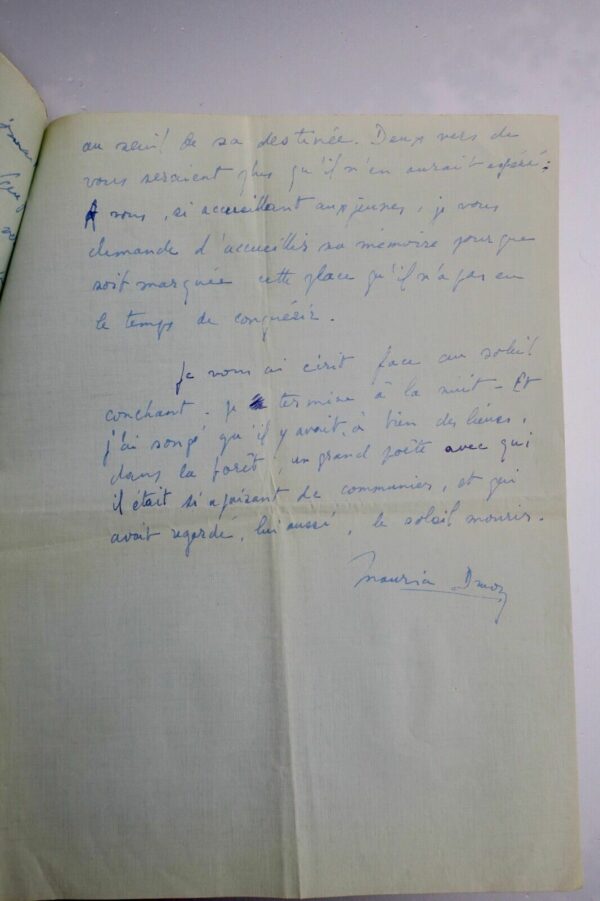 au seuil de sa destinée. Deux vers de
vous seraient plus qu'il n'en aurait espéré :
A vous, si accueillant aux jeunes, je vous
demande d'accueillir sa mémoire pour que
soit marquée cette place qu'il n'a pas eu
le temps de conquérir.
Je vous ai écrit face au soleil
couchant. Je termine à la nuit - Et
j'ai songé qu'il y avait, à bien des lieues,
dans la forêt, un grand poète avec qui
il était si apaisant de communier, et qui
avait regardé, lui aussi, le soleil mourir.